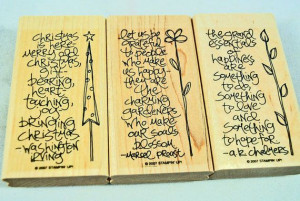 Christmas
is here,
Merry old
Christmas,
gift-
bearing,
heart
touching,
joy-
bringing
Christmas
-Washington
Irving
© 2007 STAMPIN' UP!
let us be
grateful
to people
who make
us happy-
they are
the
charming
gardeners
who make
our souls
blossom.
-Marcel Proust
© 2007 STAMPIN' UP!
the grand
essentials
of
happiness
are
something
to do,
something
to love
and
something
to hope for.
-a.k. chalmers
© 2007 STAMPIN' UP!